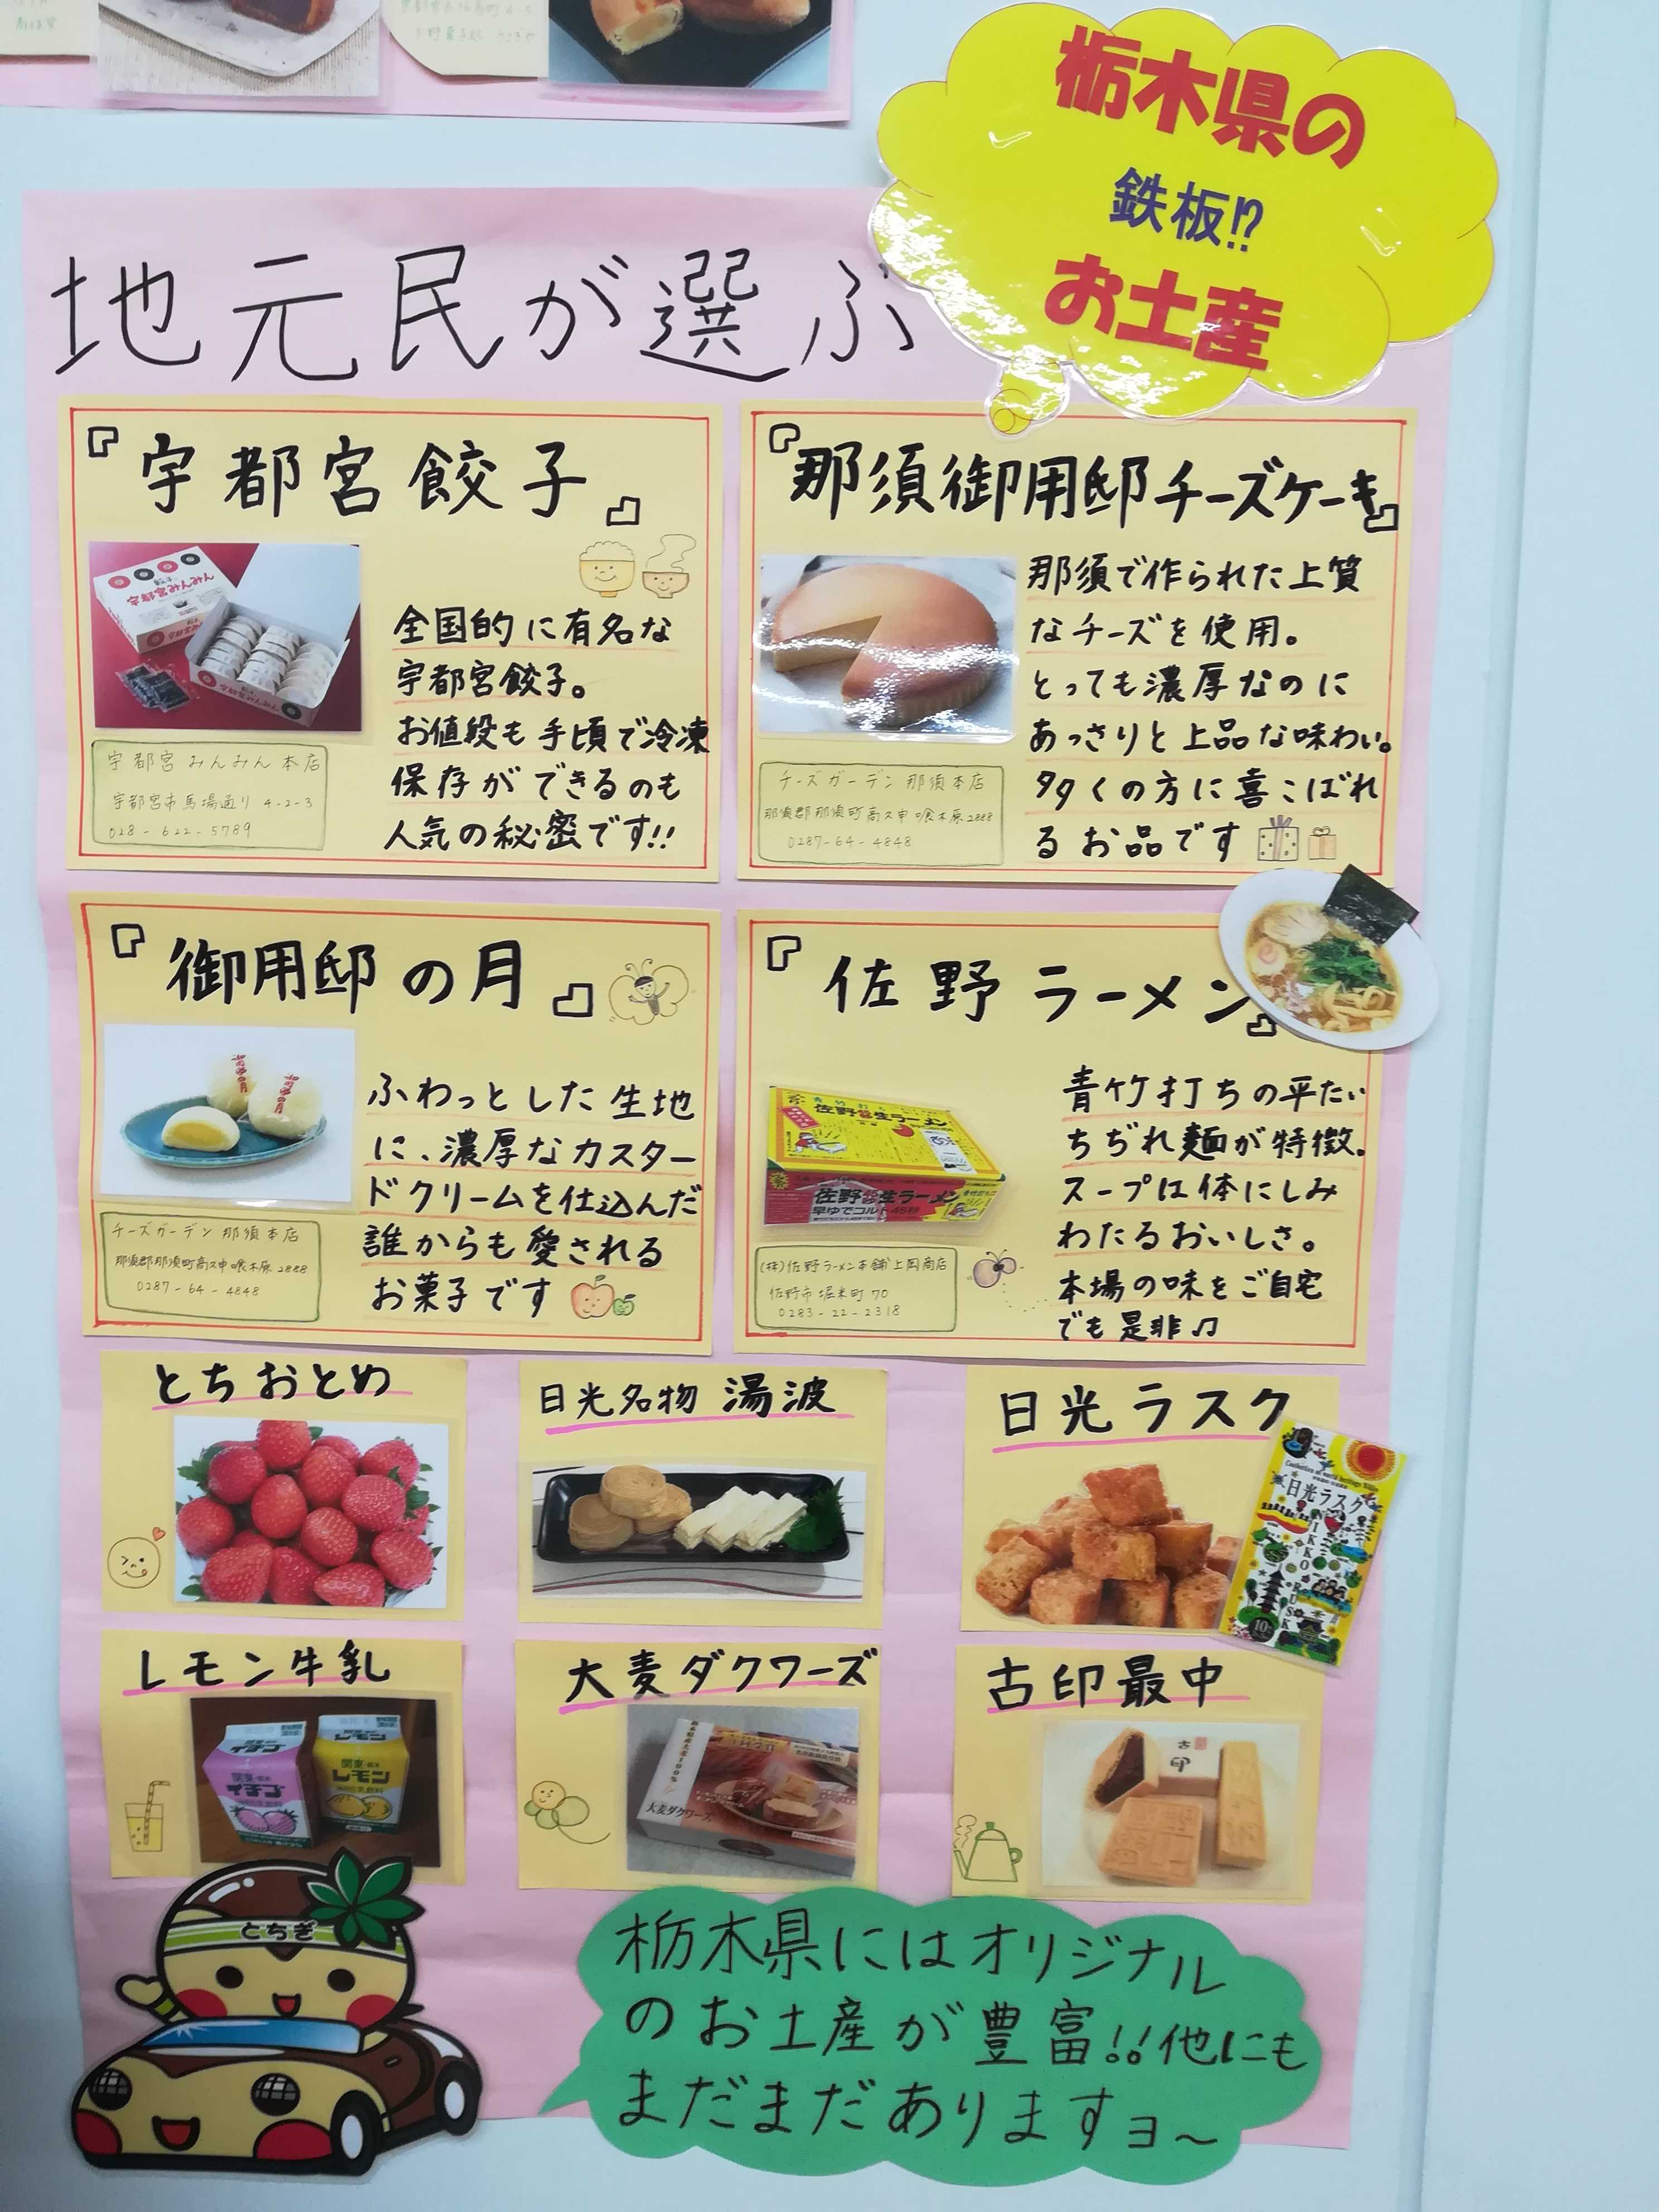 栃木県の
鉄板!?
お土産
地元民が選ぶ
『宇都宮餃子』
宇都宮みんみん
全国的に有名な
宇都宮餃子。
お値段も手頃で冷凍
保存ができるのも
人気の秘密です!!
宇都宮みんみん本店
宇都宮市馬場通り4-2-3
028-622-5789
『那須御用邸チーズケーキ』
那須で作られた上質
なチーズを使用。
とっても濃厚なのに
あっさりと上品な味わい。
多くの方に喜こばれ
るお品です
チーズガーデン那須本店
那須郡那須町高久甲喰木原2888
0287-64-4848
『御用邸の月』
御用邸の月
御用邸の月
ふわっとした生地
に、濃厚なカスター
ドクリームを仕込んだ
誰からも愛される
お菓子です
チーズガーデン那須本店
那須郡那須町高久甲喰木原2888
0287-64-4848
『佐野ラーメン』
佐野生ラーメン
佐野生ラーメン
早ゆでコルト45秒
青竹打ちの平たい
ちぢれ麺が特徴。
スープは体にしみ
わたるおいしさ。
本場の味をご自宅
でも是非♫
(株)佐野ラーメン本舗上岡商店
佐野市堀米町70
0283-22-2318
とちおとめ
日光名物 湯波
日光ラスク
日光ラスク
NIKKO RUSK
レモン牛乳
関東・栃木
イチゴ
レモン
関東・栃木
レモン
大麦ダクワーズ
大麦ダクワーズ
古印最中
古印
とちぎ
栃木県にはオリジナル
のお土産が豊富!!他にも
まだまだありますョ～